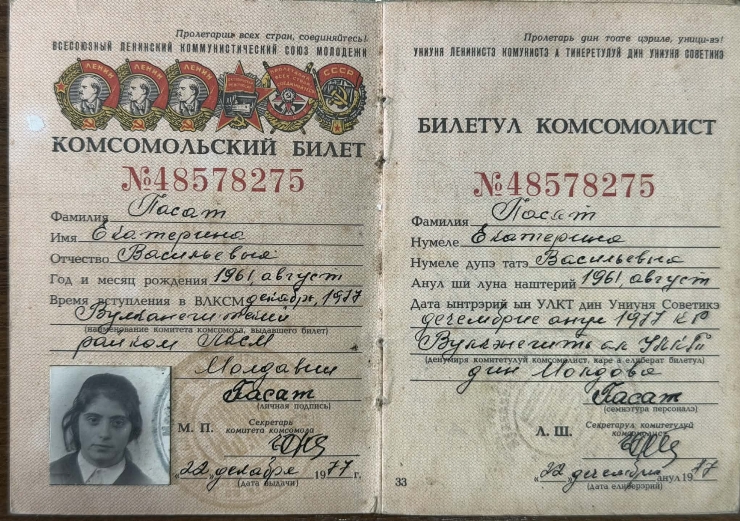 Пролетарии всех стран, соединяйтесь!
ВСЕСОЮЗНЫЙ ЛЕНИНСКИЙ КОММУНИСТИЧЕСКИЙ СОЮЗ МОЛОДЕЖИ
ЛЕНИН ЛЕНИН ЛЕНИН СССР
КОМСОМОЛЬСКИЙ БИЛЕТ
№48578275
Фамилия Пасат
Имя Екатерина
Отчество Васильевна
Год и месяц рождения 1961, август
Время вступления в ВЛКСМ декабрь, 1977
Вулканештский
(наименование комитета комсомола, выдавшего билет)
райком ЛКСМ
Молдавии
Пасат
(личная подпись)
М. П. Секретарь
комитета комсомола
"22" декабря 1977 г.
(дата выдачи)
Пролетарь дин тоате цэриле, уници-вэ!
УНИУНЯ ЛЕНИНИСТЭ КОМУНИСТЭ А ТИНЕРЕТУЛУЙ ДИН УНИУНЯ СОВЕТИКЭ
БИЛЕТУЛ КОМСОМОЛИСТ
№48578275
Фамилия Пасат
Нумеле Екатерина
Нумеле дупэ татэ Васильевна
Анул ши луна наштерий 1961, август
Дата ынтрэрий ын УЛКТ дин Униуня Советикэ
дечембрие анул 1977
(денумиря комитетулуй комсомолист, каре а елиберат билетул)
дин Молдова
Пасат
(семнэтура персоналэ)
Л. Ш. Секретарул комитетулуй
комсомолист
"22" дечембрие анул 1977
(дата елиберэрий)
33